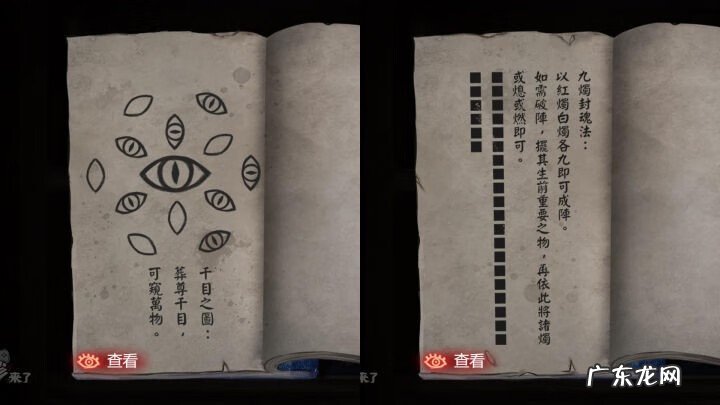 千目之圖：
葬尊千目，
可窺萬物。
查看
来了
九燭封魂法：
以紅燭白燭各九即可成陣。
如需破陣，擺其生前重要之物，再依此將諸燭
或熄或燃即可。
查看
来了
广东龙网